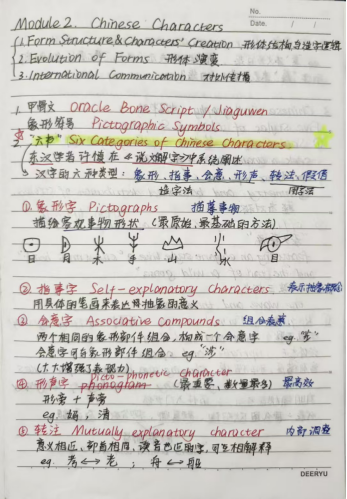 No.
Date. / /
Module 2. Chinese Characters
1. Form Structure & Characters' Creation 形体结构与造字逻辑
2. Evolution of Forms 形体演变
3. International Communication 对外传播
1. 甲骨文 Oracle Bone Script / Jiaguwen
象形符号 Pictographic Symbols
2. "六书" Six Categories of Chinese Characters
东汉学者许慎在《说文解字》中系统阐述
汉字的六种类型: 象形、指事、会意、形声、转注、假借
造字法 用字法
① 象形字 Pictographs 描摹事物
描绘客观事物形状 (最原始、最基础的方法)
日 月 木 手 山 水 目
② 指事字 Self-explanatory Characters 表示抽象
用具体的笔画来表达出抽象的意义
③ 会意字 Associative compounds 组合表意
两个相同的象形部件组合, 构成一个会意字 eg.
会意字可由象形部件组合 eg.
(大大增强了表现力)
picto-phonetic character
④ 形声字 phonogram (最重要、数量最多) 最高效
形旁 + 声旁
eg. 妈; 清
⑤ 转注 Mutually explanatory character 内部调整
意义相近, 部首相同, 读音也近的字, 可互相解释
eg. 考 ↔ 老;
DEERYU